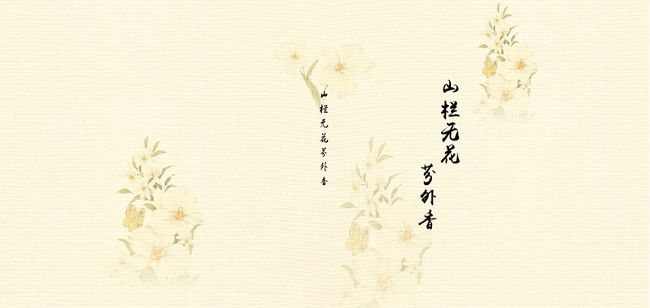 山栏无花
芬外香
山栏无花芬外香